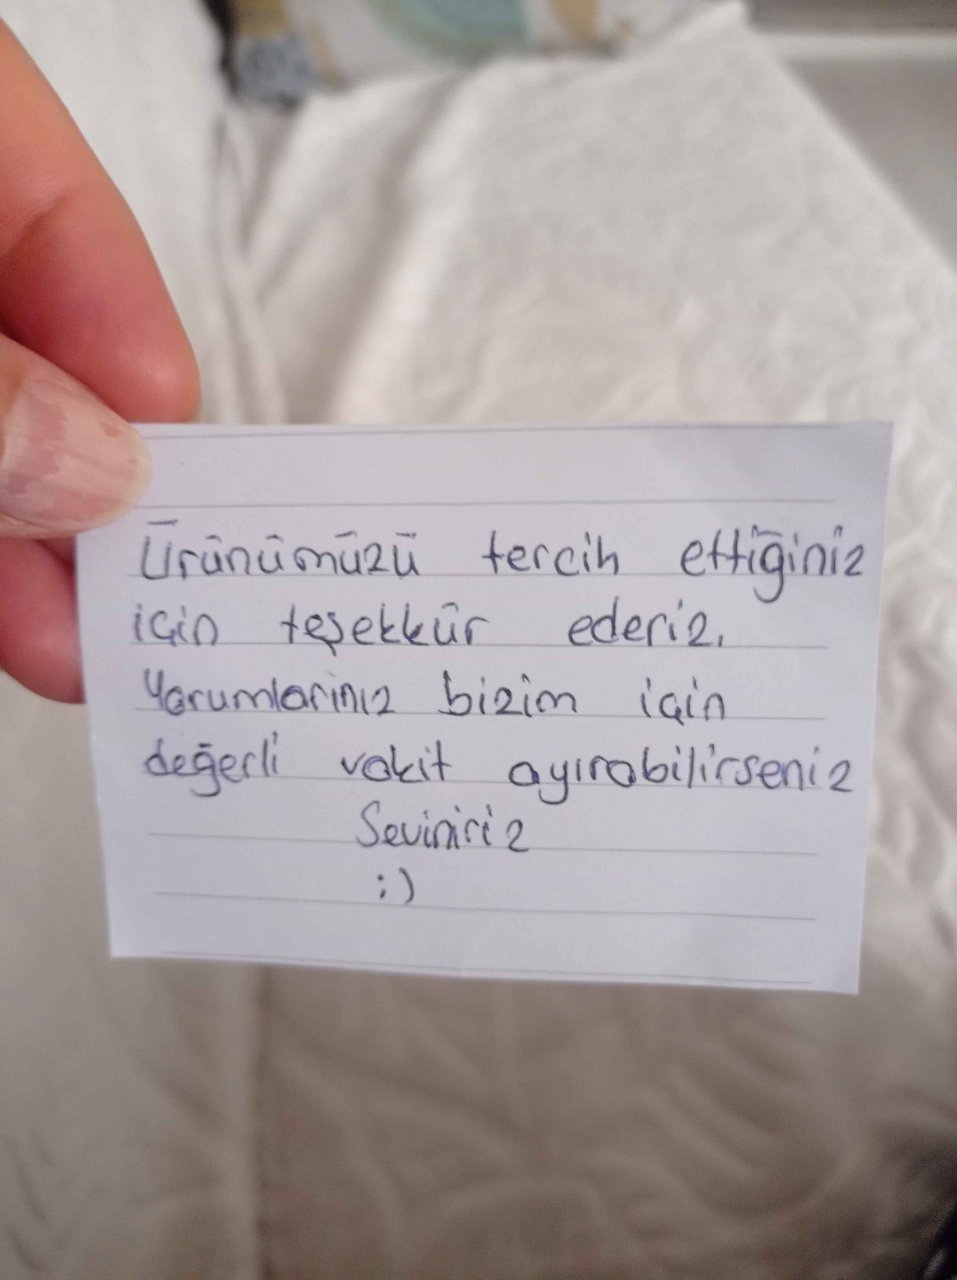 Ürünümüzü tercih ettiğiniz
için teşekkür ederiz.
Yorumlarınız bizim için
değerli vakit ayırabilirseniz
Seviniriz
:)